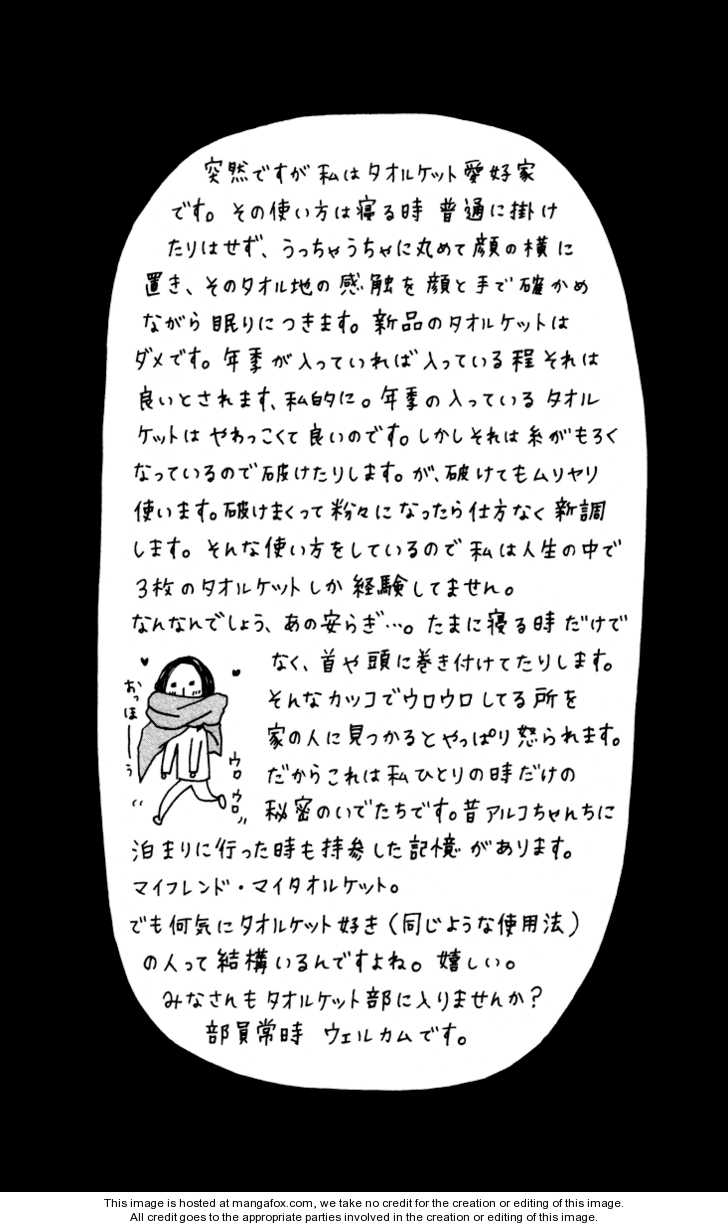 突然ですが私はタオルケット愛好家
です。その使い方は寝る時 普通に掛け
たりはせず、うっちゃうちゃに丸めて顔の横に
置き、そのタオル地の感触を顔と手で確かめ
ながら眠りにつきます。新品のタオルケットは
ダメです。年季が入っていれば入っている程それは
良いとされます、私的に。年季の入っているタオル
ケットはやわっこくて良いのです。しかしそれは糸がもろく
なっているので破けたりします。が、破けてもムリヤリ
使います。破けまくって粉々になったら仕方なく新調
します。そんな使い方をしているので私は人生の中で
3枚のタオルケットしか経験してません。
なんなんでしょう、あの安らぎ…。たまに寝る時だけで
なく、首や頭に巻き付けてたりします。
そんなカッコでウロウロしてる所を
家の人に見つかるとやっぱり怒られます。
だからこれは私ひとりの時だけの
秘密のいでたちです。昔アルコちゃんちに
泊まりに行った時も持参した記憶があります。
マイフレンド・マイタオルケット。
でも何気にタオルケット好き(同じような使用法)
の人って結構いるんですよね。嬉しい。
みなさんもタオルケット部に入りませんか?
部員常時 ウェルカムです。
おっほーーう
ウロ
ウロ
This image is hosted at mangafox.com, we take no credit for the creation or editing of this image.
All credit goes to the appropriate parties involved in the creation or editing of this image.